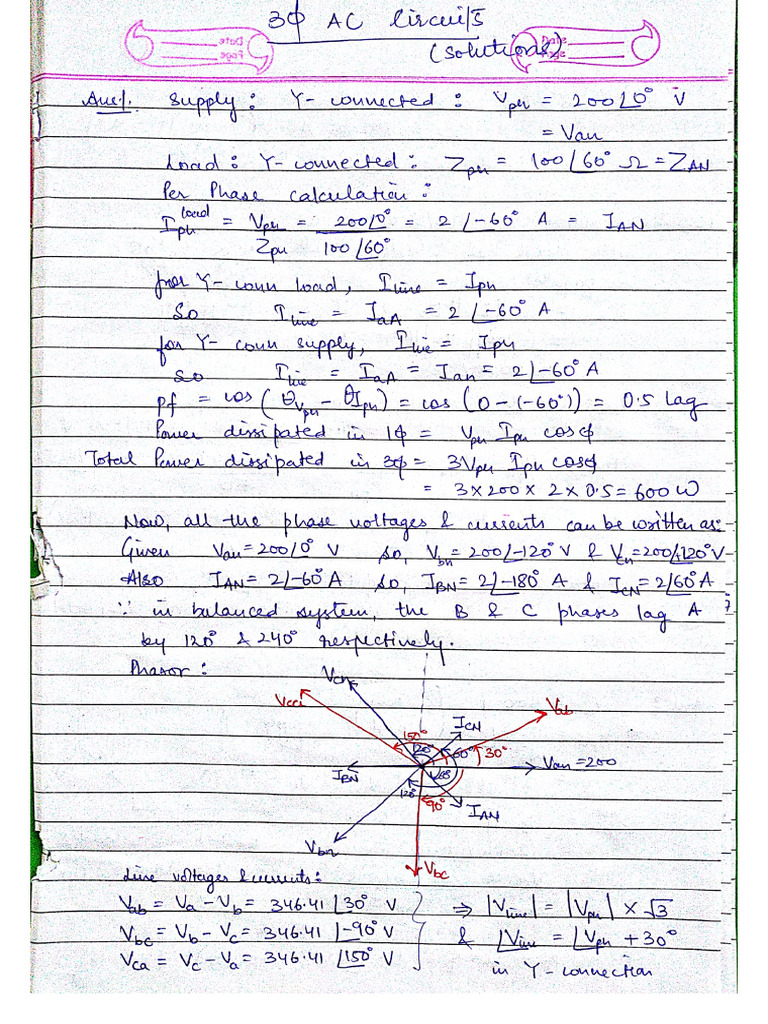 3φ AC Circuits
(Solutions)
Ans1. Supply: Y-connected: Vph = 200∠0° V
= Van
Load: Y-connected: Zph = 100∠60° Ω = ZAN
Per Phase calculation:
Iph load = Vph / Zph = 200∠0° / 100∠60° = 2∠-60° A = IAN
for Y-conn load, Iline = Iph
So Iline = IaA = 2∠-60° A
for Y-conn supply, Iline = Iph
so Iline = IaA = Ian = 2∠-60° A
Pf = cos(θVph - θIph) = cos(0-(-60°)) = 0.5 lag
Power dissipated in 1φ = Vph Iph cosφ
Total Power dissipated in 3φ = 3Vph Iph cosφ
= 3×200×2×0.5 = 600 W
Now, all the phase voltages & currents can be written as:
Given Van = 200∠0° V so, Vbn = 200∠-120° V & Vcn = 200∠120° V
Also IAN = 2∠-60° A so, IBN = 2∠-180° A & ICN = 2∠60° A
∵ in balanced system, the B & C phases lag A
by 120° & 240° respectively.
Phasor:
Vcn
Vca
Vab
ICN
150°
120°
60°
30°
IBN
Van = 200
120°
90°
IAN
Vbn
Vbc
Line voltages & currents:
Vab = Va - Vb = 346.41 ∠30° V ⇒ |Vline| = |Vph| × √3
Vbc = Vb - Vc = 346.41 ∠-90° V & ∠Vline = ∠Vph + 30°
Vca = Vc - Va = 346.41 ∠150° V in Y-connection